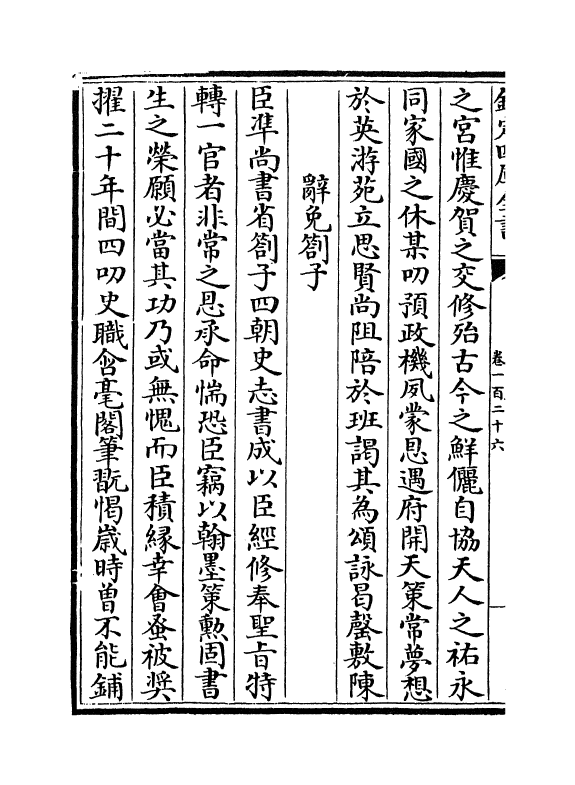 欽定四庫全書
卷一百二十六
之宮惟慶賀之交修殆古今之鮮儷自協天人之祐永
同家國之休某叨預政機夙蒙恩遇府開天策常夢想
於英游苑立思賢尚阻陪於班謁其為頌詠曷罄敷陳
辭免劄子
臣準尚書省劄子四朝史志書成以臣經修奉聖旨特
轉一官者非常之恩承命惴恐臣竊以翰墨策勲固書
生之榮願必當其功乃或無愧而臣積縁幸會蚤被奨
擢二十年間四叨史職含毫閣筆翫愒嵗時曽不能鋪